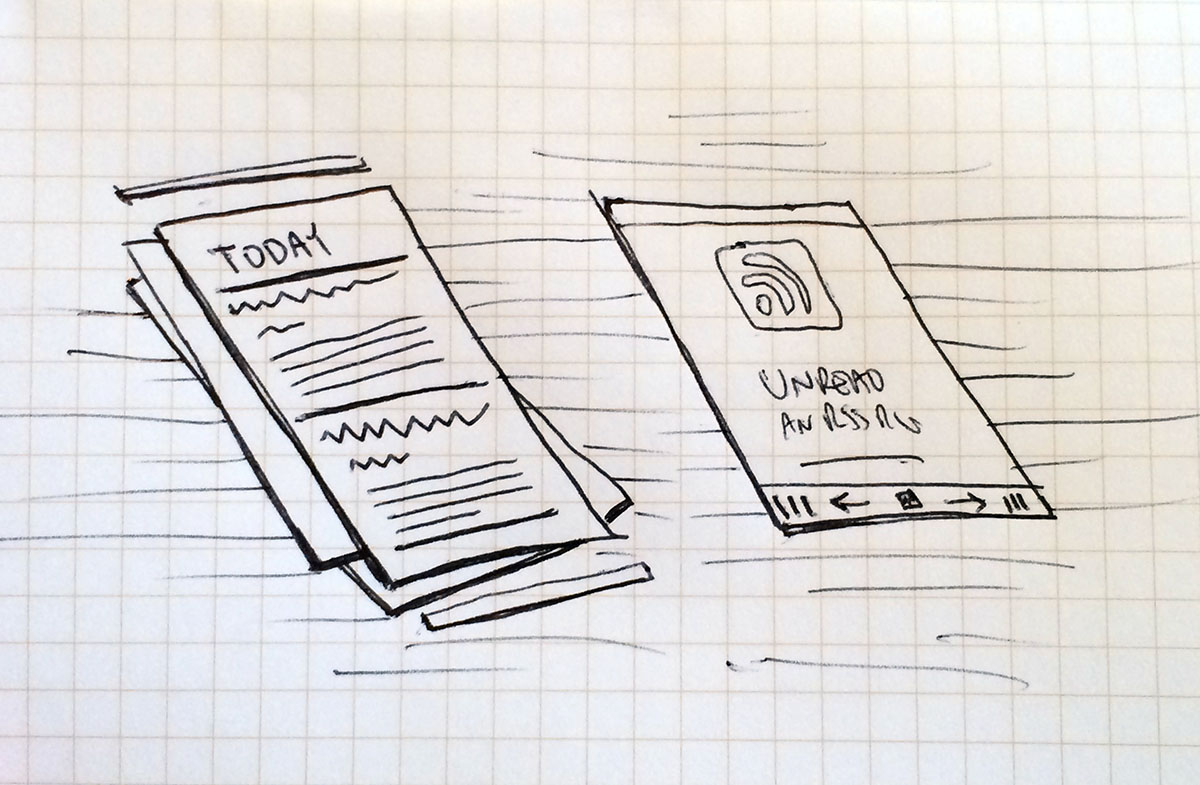 TODAY
UNREAD
AN RSS